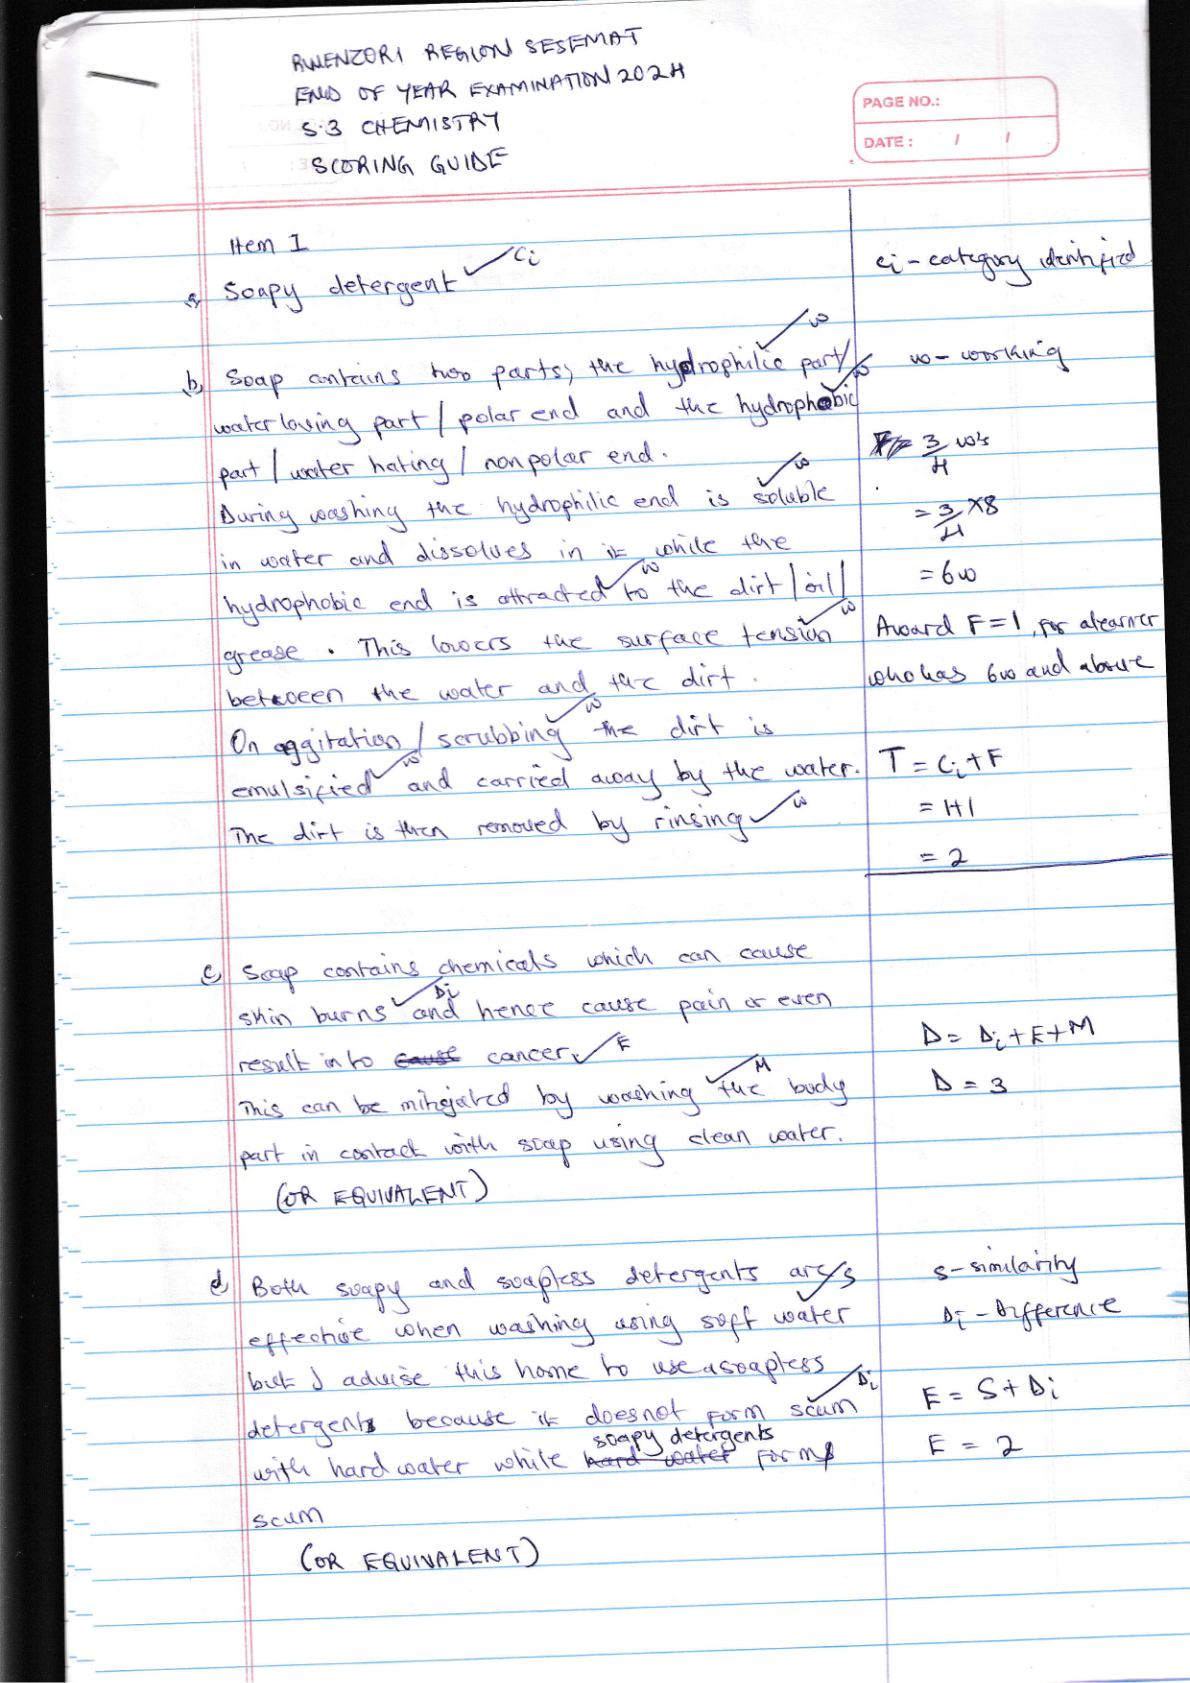 RWENZORI REGION SESEMAT
END OF YEAR EXAMINATION 2024
S.3 CHEMISTRY
SCORING GUIDE
PAGE NO.:
DATE : / /
Item 1
a) Soapy detergent ✓ Ci
Ci - category identified
b) Soap contains two parts; the hydrophilic part/ ✓ w
w - working
water loving part / polar end and the hydrophobic ✓ w
part / water hating / non polar end.
F = 3/4 w's
During washing the hydrophilic end is soluble ✓ w
= 3/4 x 8
in water and dissolves in it while the
= 6w
hydrophobic end is attracted ✓ w to the dirt / oil /
grease . This lowers the surface tension ✓ w
Award F = 1, for a learner
who has 6w and above
between the water and the dirt .
On aggitation / scrubbing ✓ w the dirt is
emulsified ✓ w and carried away by the water.
T = Ci + F
The dirt is then removed by rinsing ✓ w
= 1+1
= 2
c) Soap contains chemicals which can cause
skin burns ✓ Di and hence cause pain or even
result in to cause cancer. ✓ E
D = Di + E + M
This can be mitigated by washing ✓ M the body
D = 3
part in contact with soap using clean water.
(OR EQUIVALENT)
d) Both soapy and soapless detergents are ✓ s
s - similarity
effective when washing using soft water
Di - Difference
but I advise this home to use a soapless
detergents because it doesnot form scum ✓ Di
E = S + Di
with hard water while hard water soapy detergents forms
E = 2
scum
(OR EQUIVALENT)